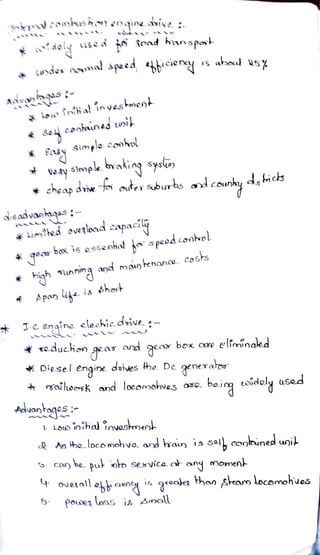 Internal combustion engine drive :-
* widely used for road transport
* under normal speed, efficiency is about 25%
Advantages :-
* Low initial investment
* self contained unit
* Easy simple control
* very simple braking system
* cheap drive for outer suburbs and country districts
disadvantages :-
* Limited overload capacity
* gear box is essential for speed control
* High running and maintenance costs
* Span life is short
* I.C engine electric drive :-
* reduction gear and gear box are eliminated
* Diesel engine drives the Dc generator
* railwork and locomotives are being widely used
Advantages :-
1. Low initial investment
2 As the locomotive and train is self contained unit
3 can be put into service at any moment
4. overall efficiency is greater than steam locomotives
5. power loss is small